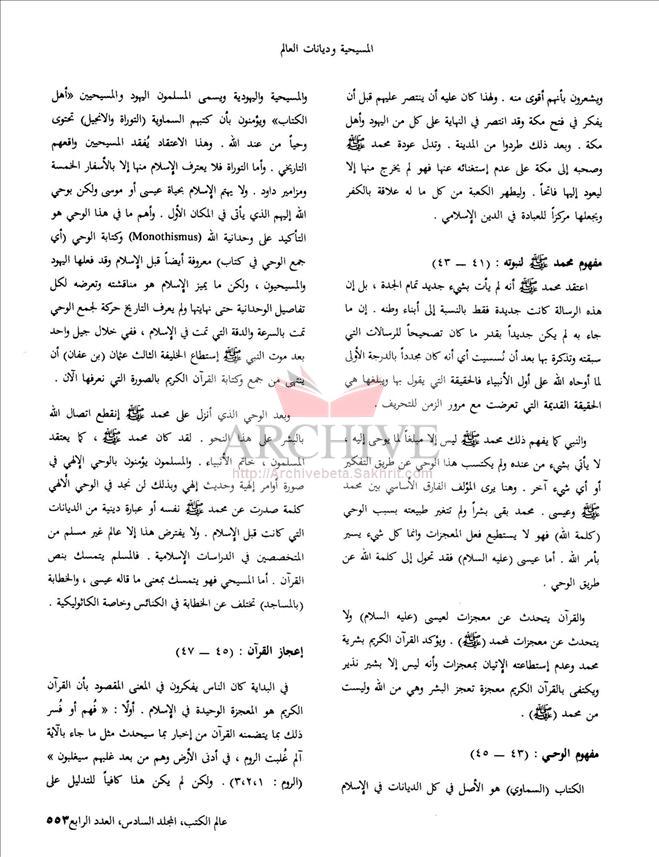 المسيحية وديانات العالم
ويشعرون بأنهم أقوى منه . ولهذا كان عليه أن ينتصر عليهم قبل أن
يفكر في فتح مكة وقد انتصر في النهاية على كل من اليهود وأهل
مكة . وبعد ذلك طردوا من المدينة . وتدل عودة محمد ﷺ
وصحبه إلى مكة على عدم إستغنائه عنها فهو لم يخرج منها إلا
ليعود إليها فاتحاً . وليطهر الكعبة من كل ما له علاقة بالكفر
ويجعلها مركزاً للعبادة في الدين الإسلامي .
مفهوم محمد ﷺ لنبوته : (٤١ ــ ٤٣)
اعتقد محمد ﷺ أنه لم يأت بشيء جديد تمام الجدة ، بل إن
هذه الرسالة كانت جديدة فقط بالنسبة إلى أبناء وطنه . إن ما
جاء به لم يكن جديداً بقدر ما كان تصحيحاً للرسالات التي
سبقته وتذكرة بها بعد أن نُسسيت أي أنه كان مجدداً بالدرجة الأولى
لما أوحاه الله على أول الأنبياء فالحقيقة التي يقول بها ويبلغها هي
الحقيقة القديمة التي تعرضت مع مرور الزمن للتحريف .
والنبي كما يفهم ذلك محمد ﷺ ليس إلا مبلغاً لما يوحى إليه ،
لا يأتي بشيء من عنده ولم يكتسب هذا الوحي عن طريق التفكير
أو أي شيء آخر . وهنا يرى المؤلف الفارق الأساسي بين محمد
ﷺ وعيسى . محمد بقى بشراً ولم تتغير طبيعته بسبب الوحي
(كلمة الله) فهو لا يستطيع فعل المعجزات وانما كل شيء يسير
بأمر الله . أما عيسى (عليه السلام) فقد تحول إلى كلمة الله عن
طريق الوحي .
والقرآن يتحدث عن معجزات لعيسى (عليه السلام) ولا
يتحدث عن معجزات لمحمد (ﷺ) . ويؤكد القرآن الكريم بشرية
محمد وعدم إستطاعته الإتيان بمعجزات وأنه ليس إلا بشير نذير
ويكتفى بالقرآن الكريم معجزة تعجز البشر وهي من الله وليست
من محمد (ﷺ) .
مفهوم الوحي : (٤٣ ــ ٤٥)
الكتاب (السماوي) هو الأصل في كل الديانات في الإسلام
والمسيحية واليهودية ويسمى المسلمون اليهود والمسيحيين «أهل
الكتاب» ويؤمنون بأن كتبهم السماوية (التوراة والانجيل) تحتوى
وحياً من عند الله . وهذا الاعتقاد يُفقد المسيحيين واقعهم
التاريخي . وأما التوراة فلا يعترف الإسلام منها إلا بالأسفار الخمسة
ومزامير داود . ولا يهتم الإسلام بحياة عيسى أو موسى ولكن بوحي
الله إليهم الذي يأتى في المكان الأول . وأهم ما في هذا الوحي هو
التأكيد على وحدانية الله (Monothismus) وكتابة الوحي (أي
جمع الوحي في كتاب) معروفة أيضاً قبل الإسلام وقد فعلها اليهود
والمسيحيون ، ولكن ما يميز الإسلام هو مناقشته وتعرضه لكل
تفاصيل الوحدانية حتى نهايتها ولم يعرف التاريخ حركة لجمع الوحي
تمت بالسرعة والدقة التي تمت في الإسلام ، ففي خلال جيل واحد
بعد موت النبي ﷺ إستطاع الخليفة الثالث عثمان (بن عفان) أن
ينتهى من جمع وكتابة القرآن الكريم بالصورة التي نعرفها الآن .
وبعد الوحي الذي أنزل على محمد ﷺ إنقطع اتصال الله
بالبشر على هذا النحو . لقد كان محمد ﷺ ، كما يعتقد
المسلمون ، خاتم الأنبياء . والمسلمون يؤمنون بالوحي الإلهي في
صورة أوامر إلهية وحديث إلهي وبذلك لن نجد في الوحي الالهي
كلمة صدرت عن محمد ﷺ نفسه أو عبارة دينية من الديانات
التي كانت قبل الإسلام . ولا يفترض هذا إلا عالم غير مسلم من
المتخصصين في الدراسات الإسلامية . فالمسلم يتمسك بنص
القرآن . أما المسيحي فهو يتمسك بمعنى ما قاله عيسى ، والخطابة
(بالمساجد) تختلف عن الخطابة في الكنائس وخاصة الكاثوليكية .
إعجاز القرآن : (٤٥ ــ ٤٧)
في البداية كان الناس يفكرون في المعنى المقصود بأن القرآن
الكريم هو المعجزة الوحيدة في الإسلام . أولًا : « فُهم أو فُسر
ذلك بما يتضمنه القرآن من إخبار بما سيحدث مثل ما جاء بالآية
آلم غُلبت الروم ، في أدنى الأرض وهم من بعد غلبهم سيغلبون »
(الروم : ٣،٢،١) . ولكن لم يكن هذا كافياً للتدليل على
ARCHIVE
http://Archivebeta.Sakhrit.com
عالم الكتب، المجلد السادس، العدد الرابع ٥٥٣